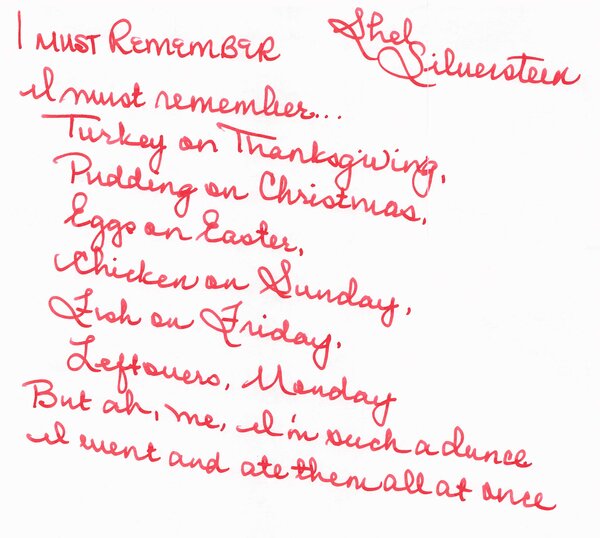 I MUST REMEMBER
Shel
Silverstein
I must remember...
Turkey on Thanksgiving,
Pudding on Christmas,
Eggs on Easter,
Chicken on Sunday,
Fish on Friday,
Leftovers, Monday
But ah, me, I'm such a dunce
I went and ate them all at once